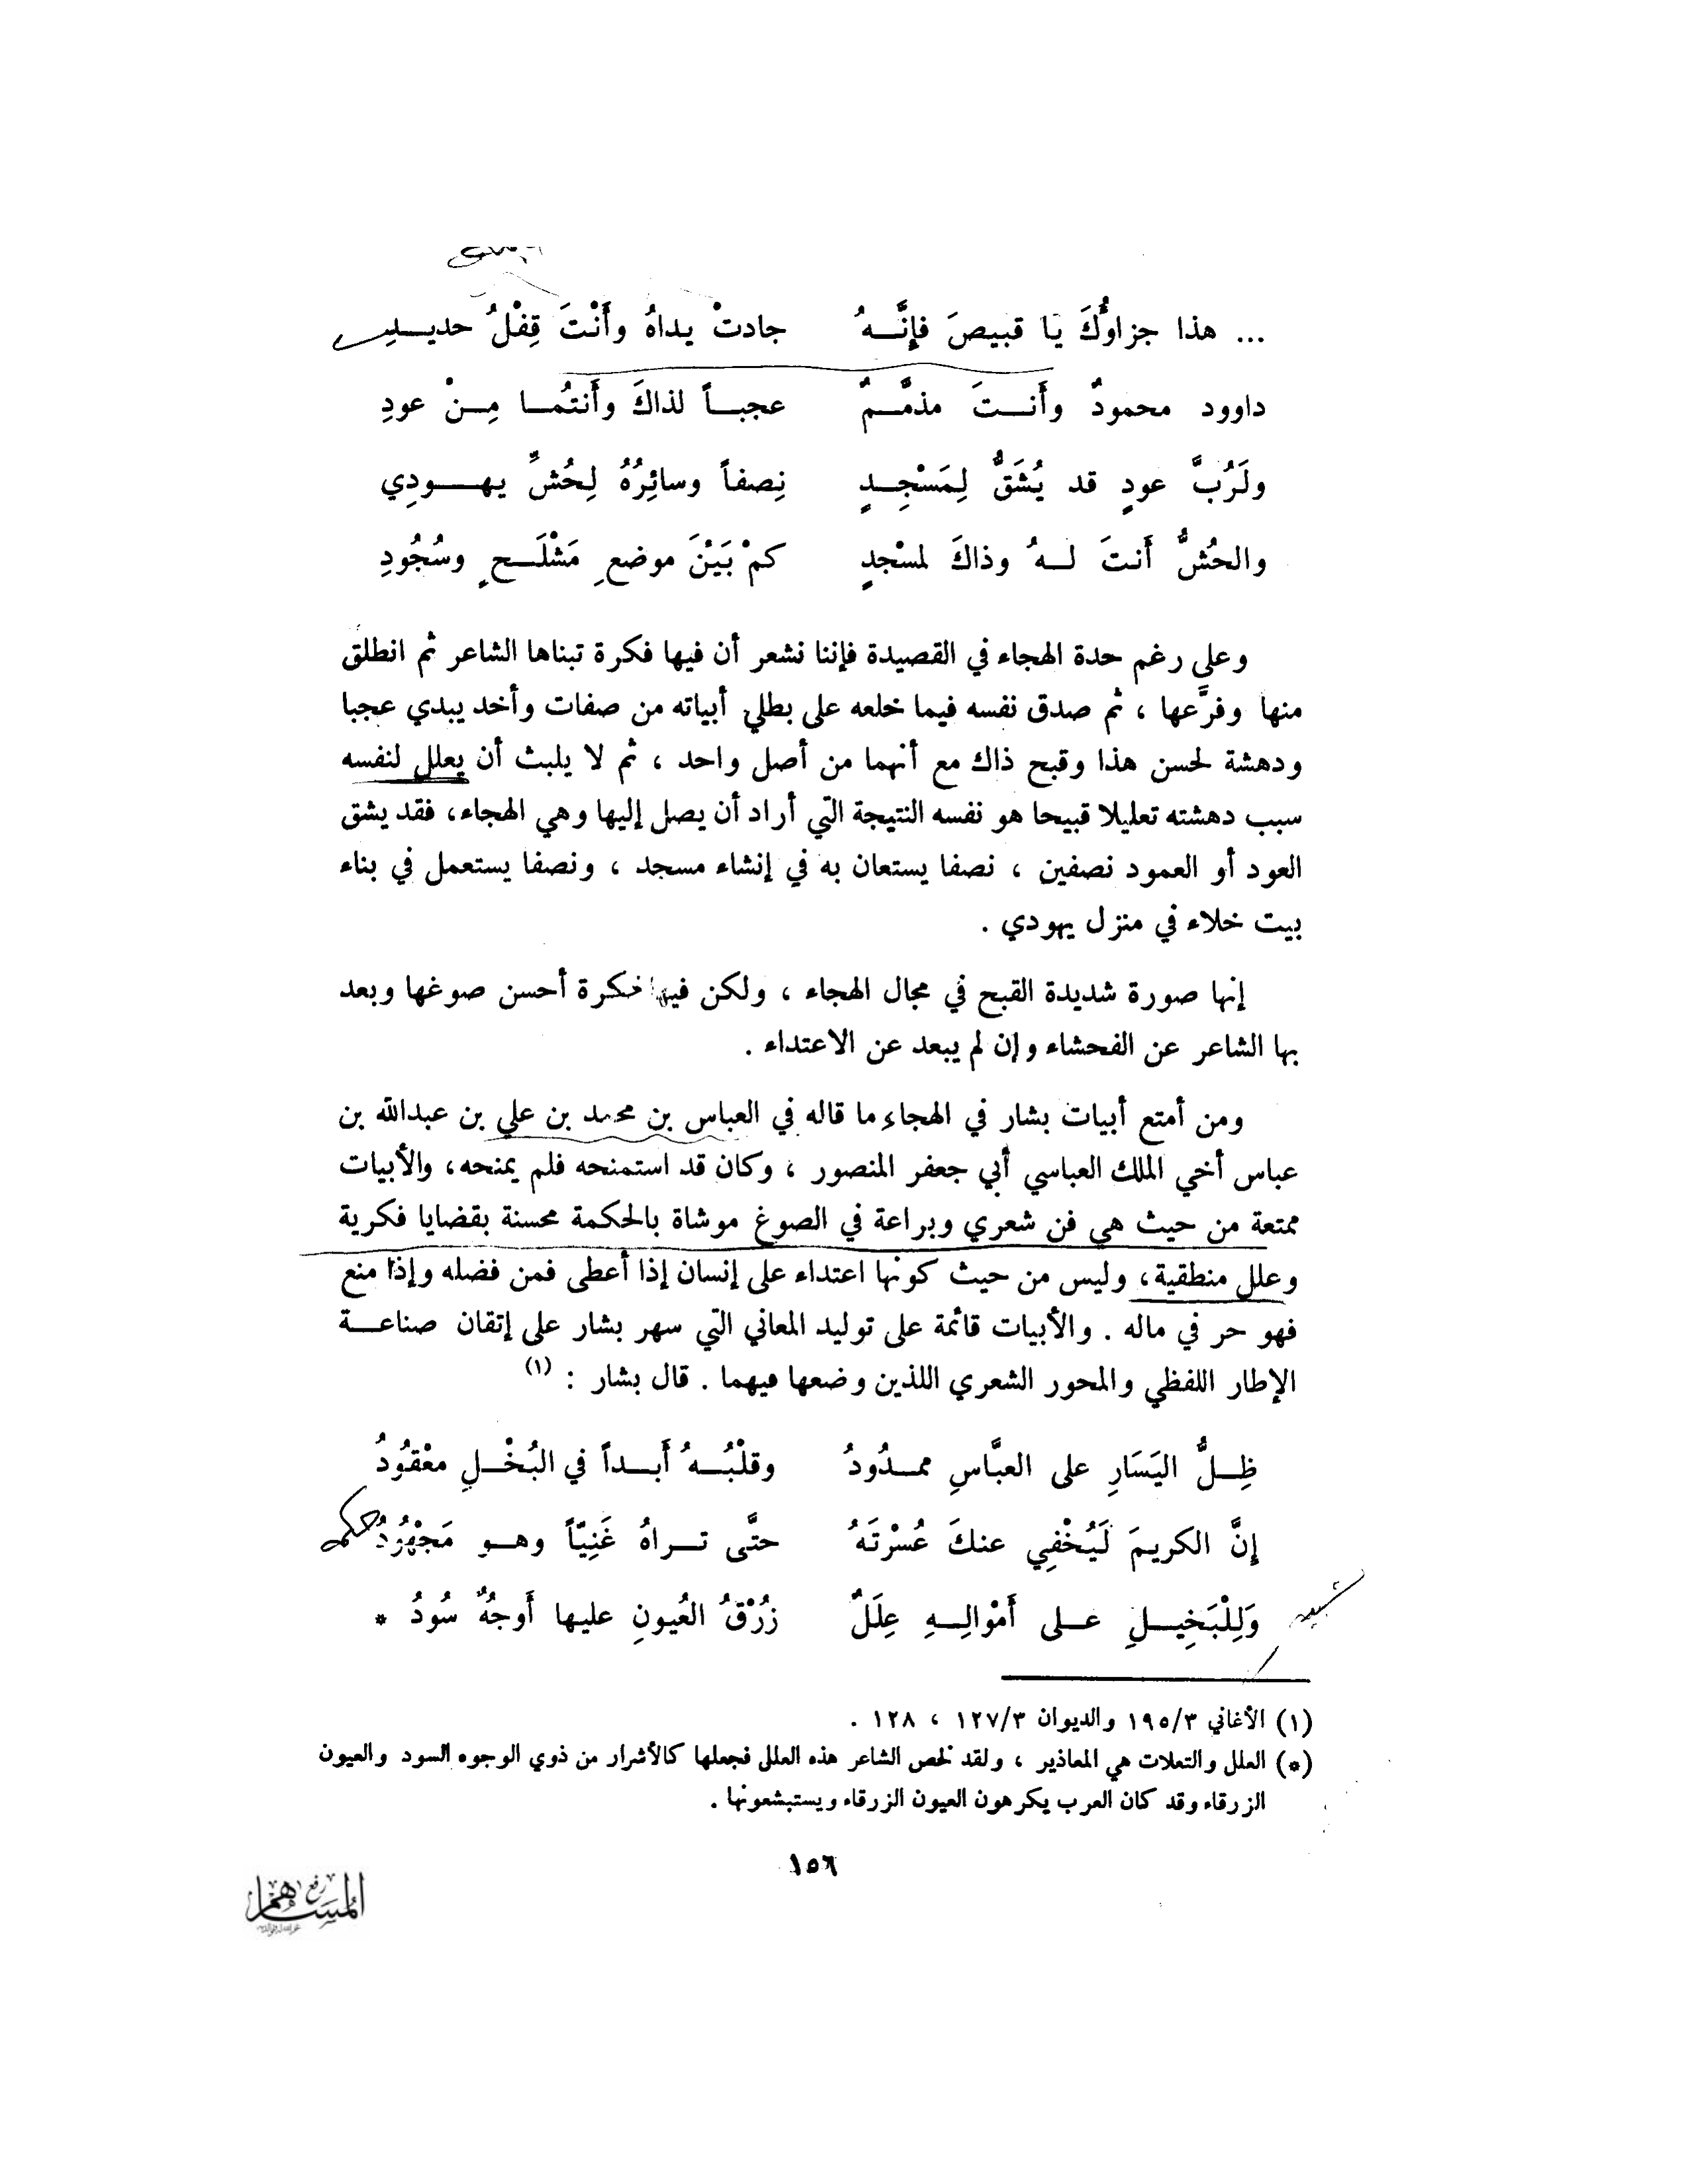 ... هذا جزاؤُكَ يا قبيصَ فإنَّـــهُ جادتْ يداهُ وأَنْتَ قِفْلُ حديــدِ
داوود محمودٌ وأَنـــتَ مذمَّــمٌ عجبــاً لذاكَ وأَنتُمــا مِــنْ عودِ
ولَرُبَّ عودٍ قد يُشَقُّ لِمَسْجِــدٍ نِصفاً وسائِرُهُ لِحُشِّ يهــــودِي
والحُشُّ أَنتَ لــهُ وذاكَ لمسْجدٍ كمْ بَيْنَ موضعِ مَشْلَــحٍ وسُجُودِ
وعلى رغم حدة الهجاء في القصيدة فإننا نشعر أن فيها فكرة تبناها الشاعر ثم انطلق
منها وفرَّعها ، ثم صدق نفسه فيما خلعه على بطلي أبياته من صفات وأخد يبدي عجبا
ودهشة لحسن هذا وقبح ذاك مع أنهما من أصل واحد ، ثم لا يلبث أن يعلل لنفسه
سبب دهشته تعليلا قبيحا هو نفسه النتيجة التي أراد أن يصل إليها وهي الهجاء، فقد يشق
العود أو العمود نصفين ، نصفا يستعان به في إنشاء مسجد ، ونصفا يستعمل في بناء
بيت خلاء في منزل يهودي .
إنها صورة شديدة القبح في مجال الهجاء ، ولكن فيها فكرة أحسن صوغها وبعد
بها الشاعر عن الفحشاء وإن لم يبعد عن الاعتداء .
ومن أمتع أبيات بشار في الهجاء ما قاله في العباس بن محمد بن علي بن عبدالله بن
عباس أخي الملك العباسي أبي جعفر المنصور ، وكان قد استمنحه فلم يمنحه، والأبيات
ممتعة من حيث هي فن شعري وبراعة في الصوغ موشاة بالحكمة محسنة بقضايا فكرية
وعلل منطقية، وليس من حيث كونها اعتداء على إنسان إذا أعطى فمن فضله وإذا منع
فهو حر في ماله . والأبيات قائمة على توليد المعاني التي سهر بشار على إتقان صناعـــة
الإطار اللفظي والمحور الشعري اللذين وضعها فيهما . قال بشار : (١)
ظِــلُّ اليَسَارِ على العبَّاسِ ممــدُودُ وقلْبُــهُ أَبــداً في البُخْــلِ معْقُودُ
إِنَّ الكريمَ لَيُخْفِي عنكَ عُسْرتَهُ حتَّى تــراهُ غَنِيّاً وهــو مَجْهُودُ حكمه
وَلِلْبَخِيــلِ عــلى أَمْوالِــهِ عِلَلٌ زُرْقُ العُيونِ عليها أَوجُهٌ سُودُ *
(١) الأغاني ١٩٥/٣ والديوان ١٢٧/٣ ، ١٢٨ .
(*) العلل والتعلات هي المعاذير ، ولقد لخص الشاعر هذه العلل فجعلها كالأشرار من ذوي الوجوه السود والعيون
الزرقاء وقد كان العرب يكرهون العيون الزرقاء ويستبشعونها .
١٥٦